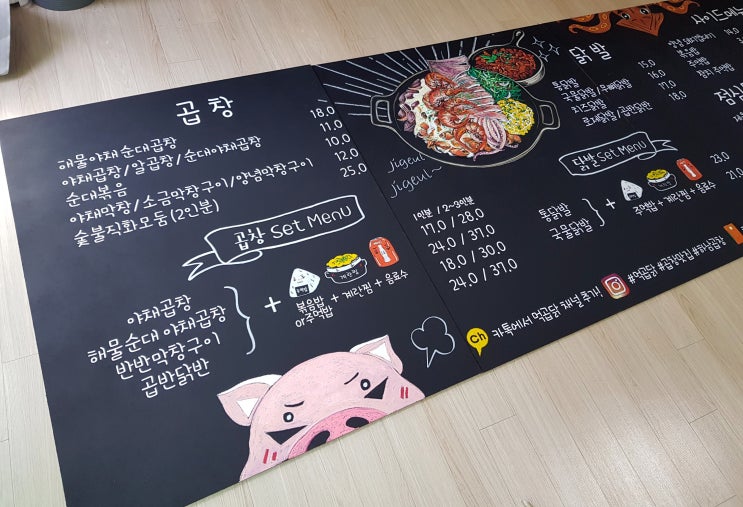 곱창
해물야채 순대곱창 18.0
야채곱창/알곱창/순대야채곱창 11.0
순대볶음 10.0
야채막창/소금막창구이/양념막창구이 12.0
숯불직화모둠(2인분) 25.0
곱창 Set Menu
야채곱창
해물순대 야채곱창
반반막창구이
곱반닭반
+ 볶음밥 or주먹밥 + 계란찜 + 음료수
계란찜
1인분 / 2~3인분
17.0 / 28.0
24.0 / 37.0
18.0 / 30.0
24.0 / 37.0
jigeul~
jigeul~
닭발
통닭발 15.0
국물닭발/무뼈닭발 16.0
치즈닭발 17.0
로제닭발/곱반닭발 18.0
닭발 Set Menu
통닭발
국물닭발
+ 주먹밥 + 계란찜 + 음료수
23.0
21.0
Ch 카톡에서 먹곱닭 채널 추가!
#먹곱닭 #곱창맛집 #하남곱창
사이드메뉴
볶음밥
주먹밥
14.0
점심